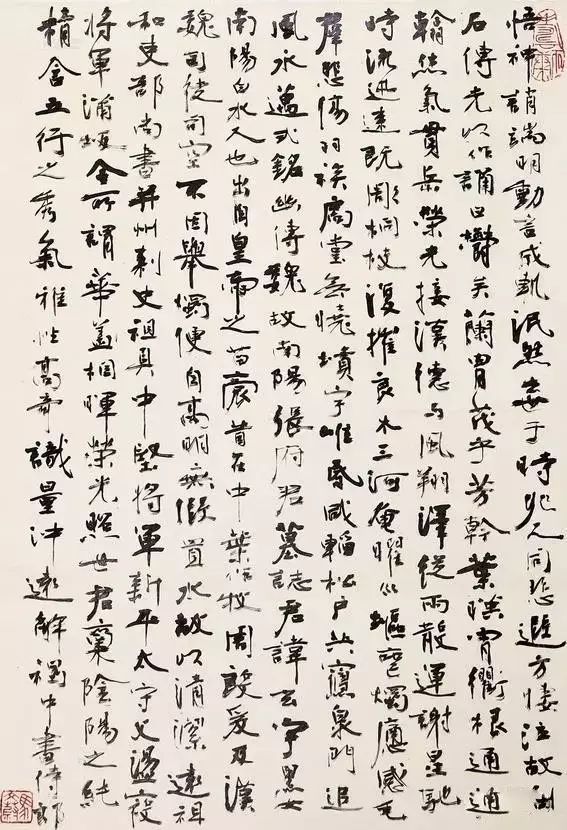 悟神誚端明動言成軌泯然去世于時兆人同悲遐方悽泣故刊
石傳光以作誦曰鬱矣蘭冑茂乎芳幹葉暎霄衢根通海
翰烋氣貫岳榮光接漢德与風翔澤從雨散運謝星馳
時流迅速既彫桐枝復摧良木三河奄曜巛塸堙燭痛感毛
羣悲傷羽族扃堂無曉墳宇唯昏咸韜松戶共寢泉門追
風永邁式銘幽傳魏故南陽張府君墓誌君諱玄字黑女
南陽白水人也出自皇帝之苗裔昔在中葉作牧周殷爰及漢
魏司徒司空不因舉燭便自高明無假置水故以清潔遠祖
和吏部尚書并州刺史祖具中堅將軍新平太守父盪寇
將軍蒲坂令所謂華蓋相暉榮光照世君稟陰陽之純
精含五行之秀氣雅性高奇識量沖遠解褐中書侍郎